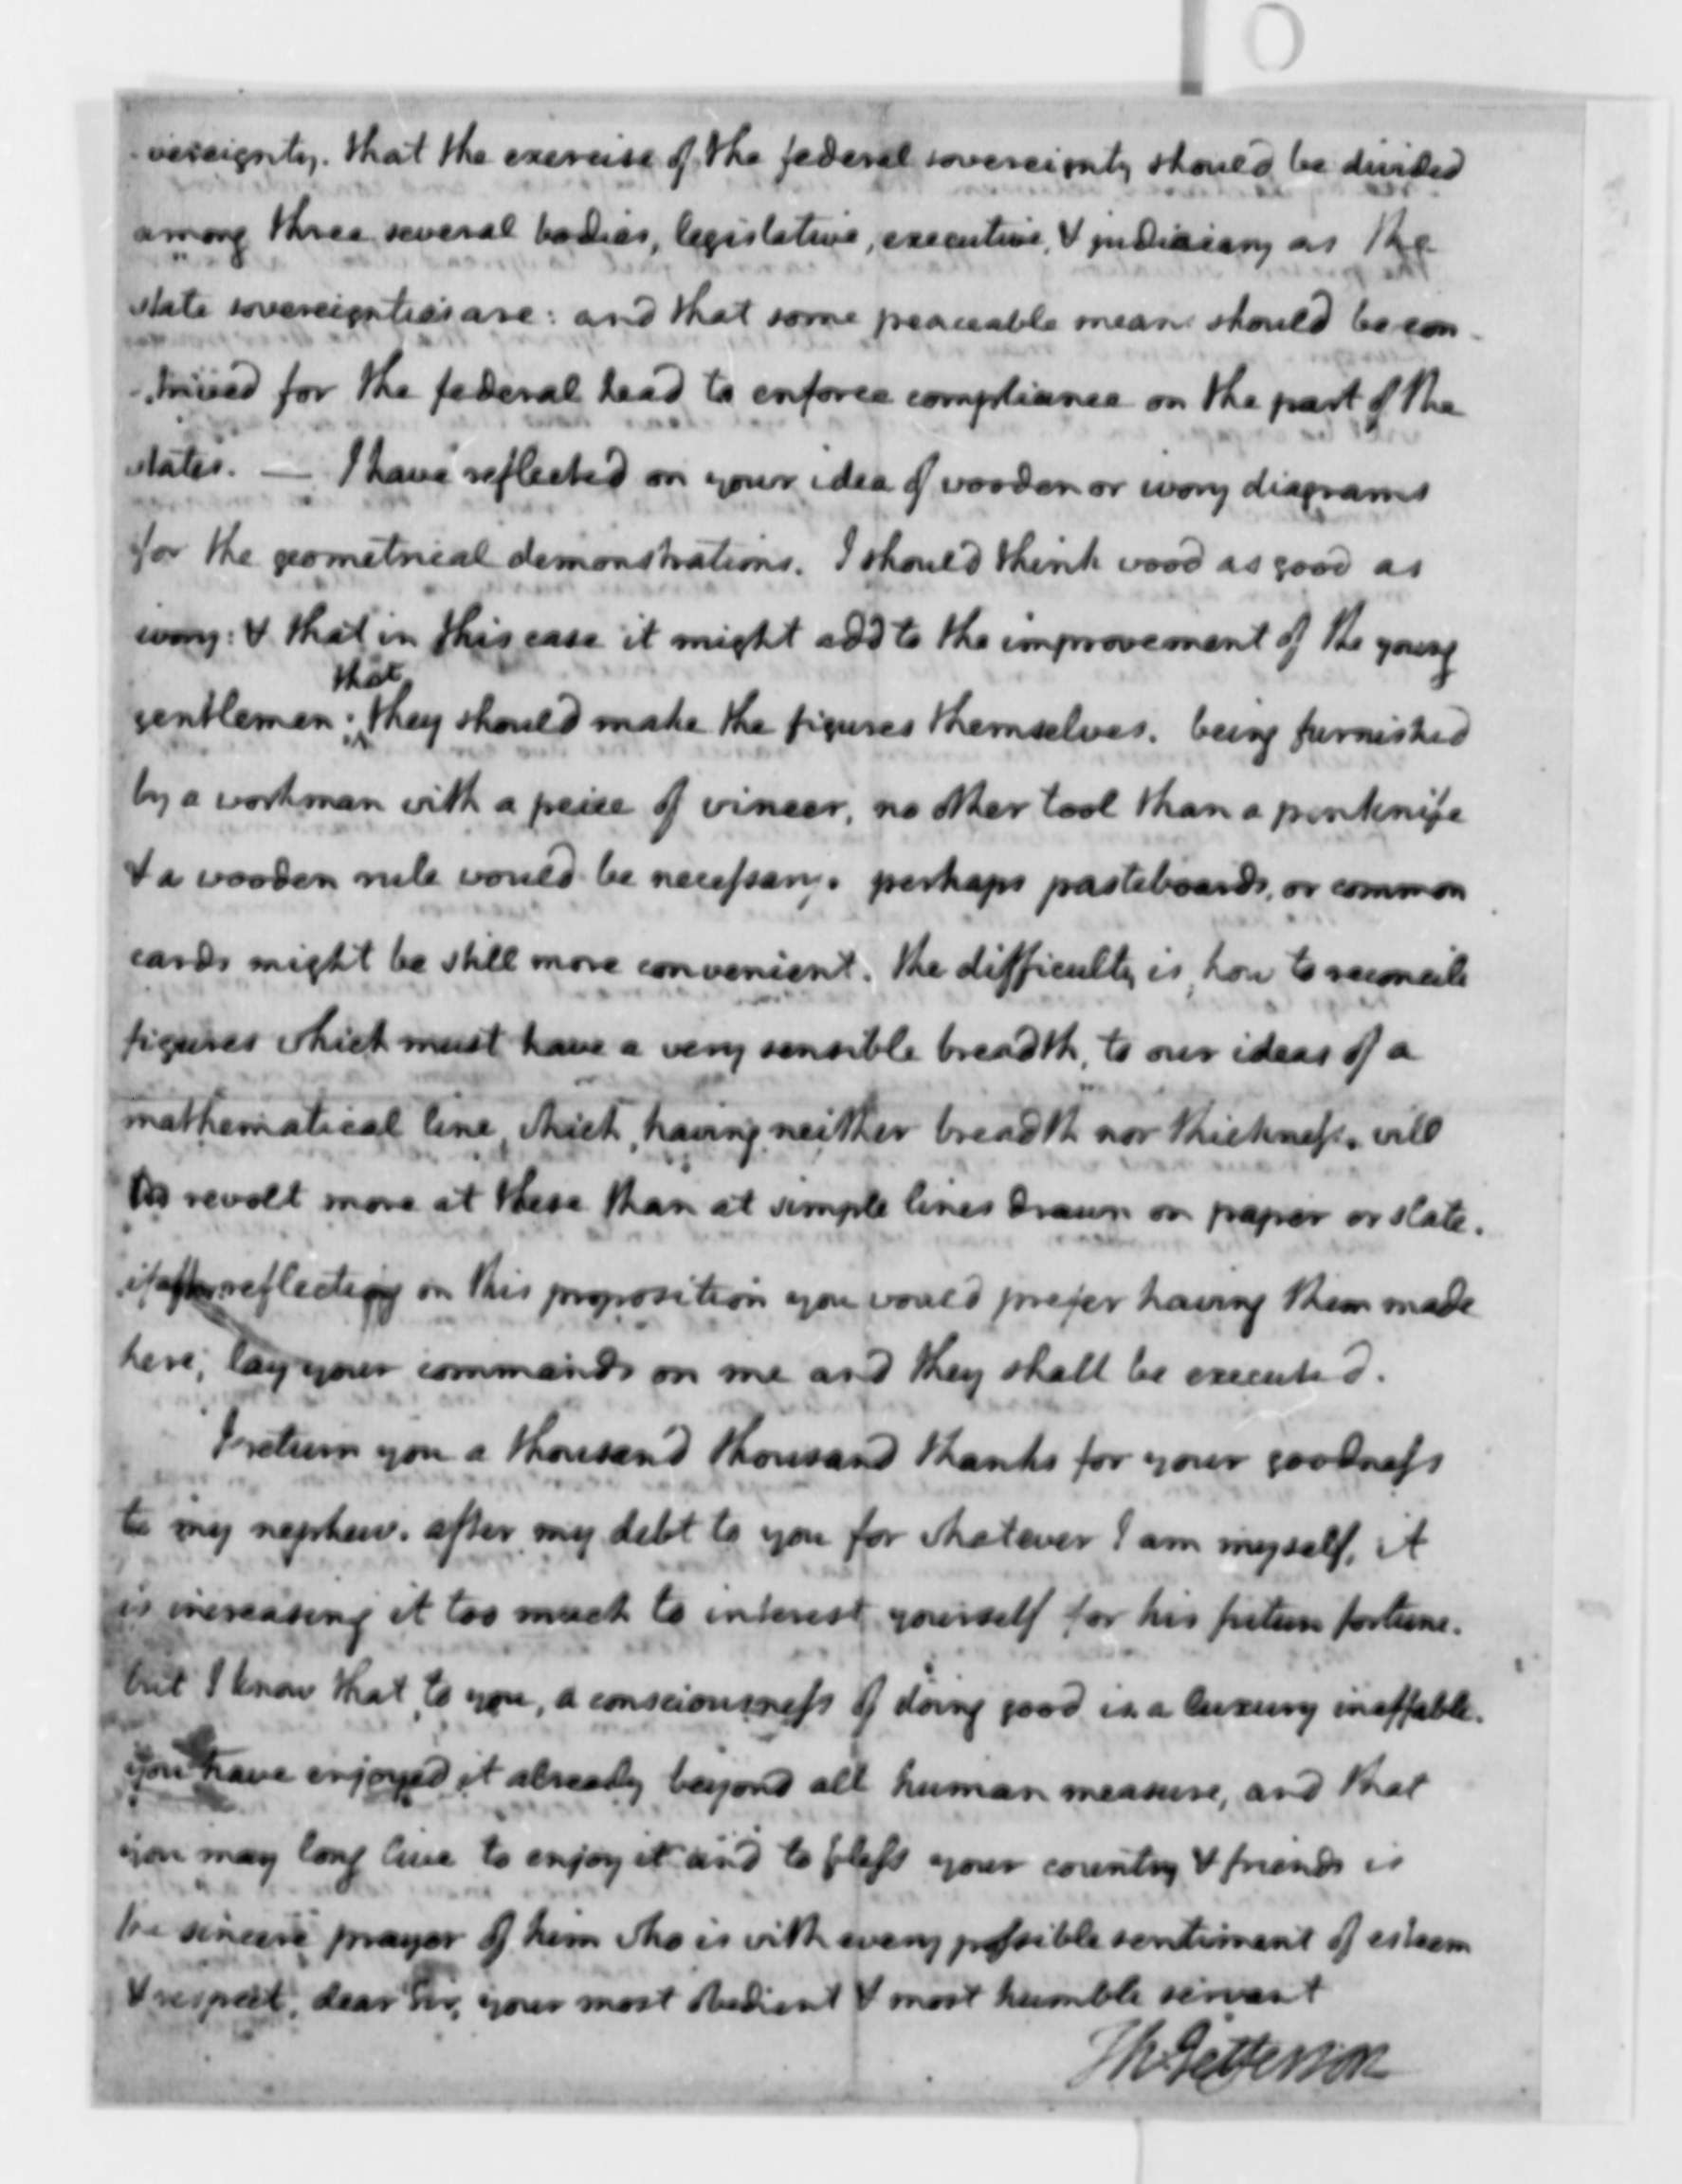 -vereignty. that the exercise of the federal sovereignty should be divided
among three several bodies, legislative, executive, & judiciary as the
state sovereignties are: and that some peaceable means should be con-
-trived for the federal head to enforce compliance on the part of the
states. — I have reflected on your idea of wooden or ivory diagrams
for the geometrical demonstrations. I should think wood as good as
ivory: & that in this case it might add to the improvement of the young
that
gentlemen; they should make the figures themselves. being furnished
by a workman with a peice of vineer, no other tool than a penknife
& a wooden rule would be necessary. perhaps pasteboards, or common
cards might be still more convenient. the difficulty is, how to reconcile
figures which must have a very sensible breadth, to our ideas of a
mathematical line, which, having neither breadth nor thickness, will
revolt more at these than at simple lines drawn on paper or slate.
if after reflecting on this proposition you would prefer having them made
here, lay your commands on me and they shall be executed.
I return you a thousand thousand thanks for your goodness
to my nephew. after my debt to you for whatever I am myself, it
is increasing it too much to interest yourself for his future fortune.
but I know that, to you, a consciousness of doing good is a luxury ineffable.
you have enjoyed it already beyond all human measure, and that
you may long live to enjoy it and to bless your country & friends is
the sincere prayer of him who is with every possible sentiment of esteem
& respect, dear Sir, your most obedient & most humble servant
Th: Jefferson